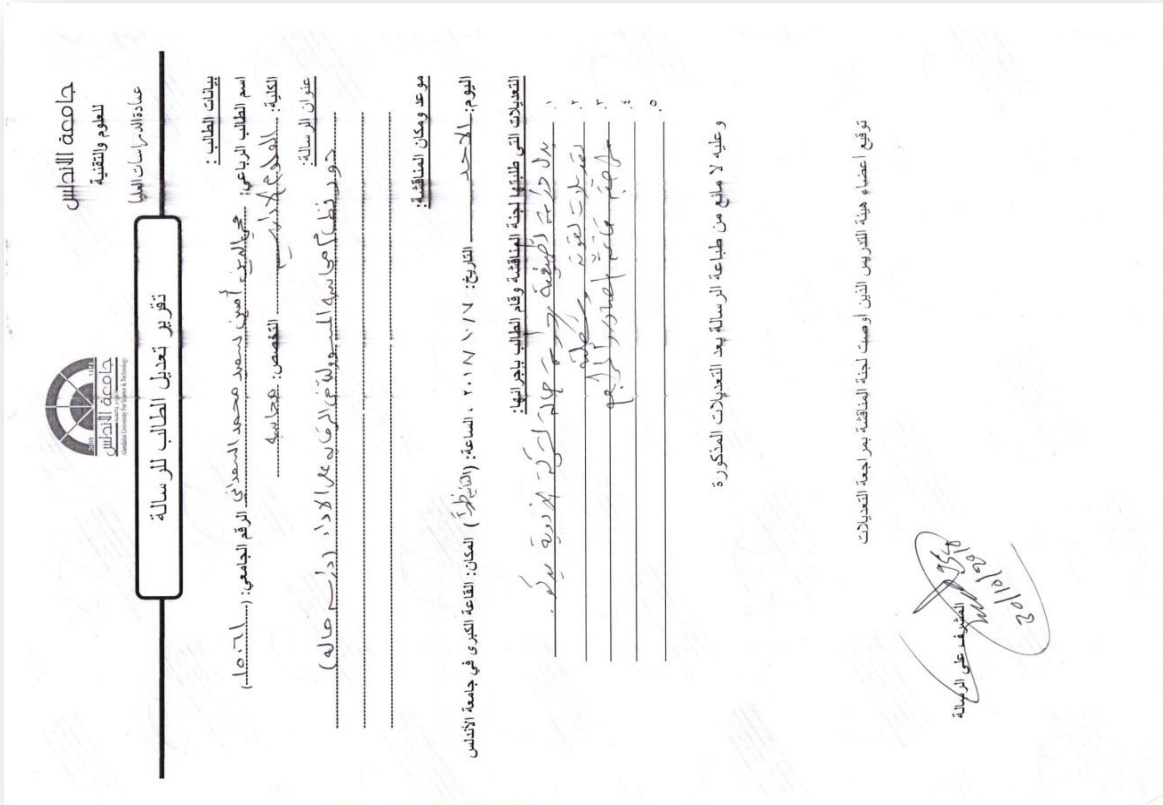 جامعة الأندلس
للعلوم والتقنية
عمادة الدراسات العليا
جامعة الأندلس
Alandalus University For Science & Technology
تقرير تعديل الطالب للرسالة
بيانات الطالب :
اسم الطالب الرباعي: محي الدين أمين سعيد محمد السعداني الرقم الجامعي: (١٥٠٦١)
الكلية: العلوم الادارية التخصص: محاسبة
عنوان الرسالة:
دور نظام محاسبة المسؤولية في الرقابة على الاداء (دراسة حالة)
موعد ومكان المناقشة:
اليوم: الاحد التاريخ: ٢٠١٨/١٠/٧ ، الساعة: (الثانية ظهراً) المكان: القاعة الكبرى في جامعة الأندلس
التعديلات التي طلبتها لجنة المناقشة وقام الطالب بإجرائها:
١. بدل دراسة تطبيقية دراسة حالة لشركة الادوية
٢. تعديلات لغوية
٣. المصادر والمراجع
٤.
٥.
وعليه لا مانع من طباعة الرسالة بعد التعديلات المذكورة
توقيع أعضاء هيئة التدريس الذين أوصت لجنة المناقشة بمراجعة التعديلات
المشرف على الرسالة